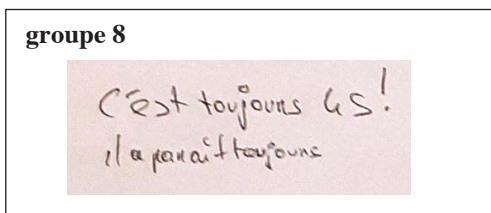 groupe 8
C'est toujours 4S!
il aparaît toujours